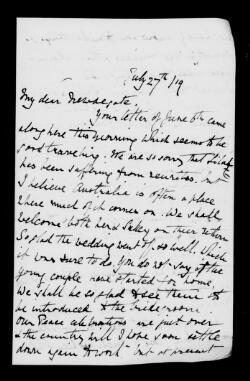 July 27th/19
My dear Newdegate.
Your letter of June 6th came
along here this morning which seems to be
good traveling. We are so sorry that
has been suffering from neuritis. but
I believe Australia is often a place
where much of it comes on. We shall
welcome both her & Sukey on their return
So glad the wedding went off so well. which
it was sure to do. You do not say if the
young couple have started for home.
We shall be so glad to see them & to
be introduced to the bridegroom.
Our Peace celebrations are just over
& the country will I hope soon settle
down again to work but at present